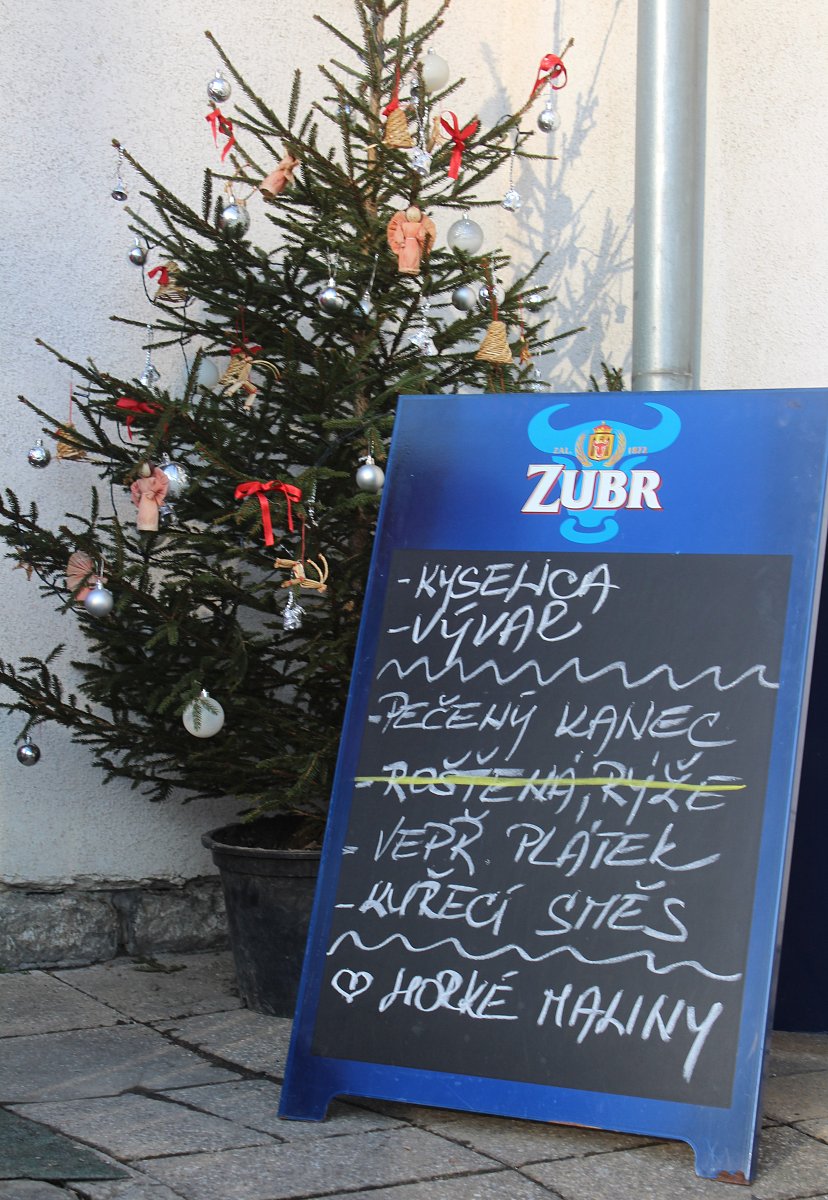 ZAL. 1872
ZUBR
-KYSELICA
-VÝVAR
-PEČENÝ KANEC
-ROŠTĚNÁ, RÝŽE
-VEPŘ. PLÁTEK
-KUŘECÍ SMĚS
♡ HORKÉ MALINY